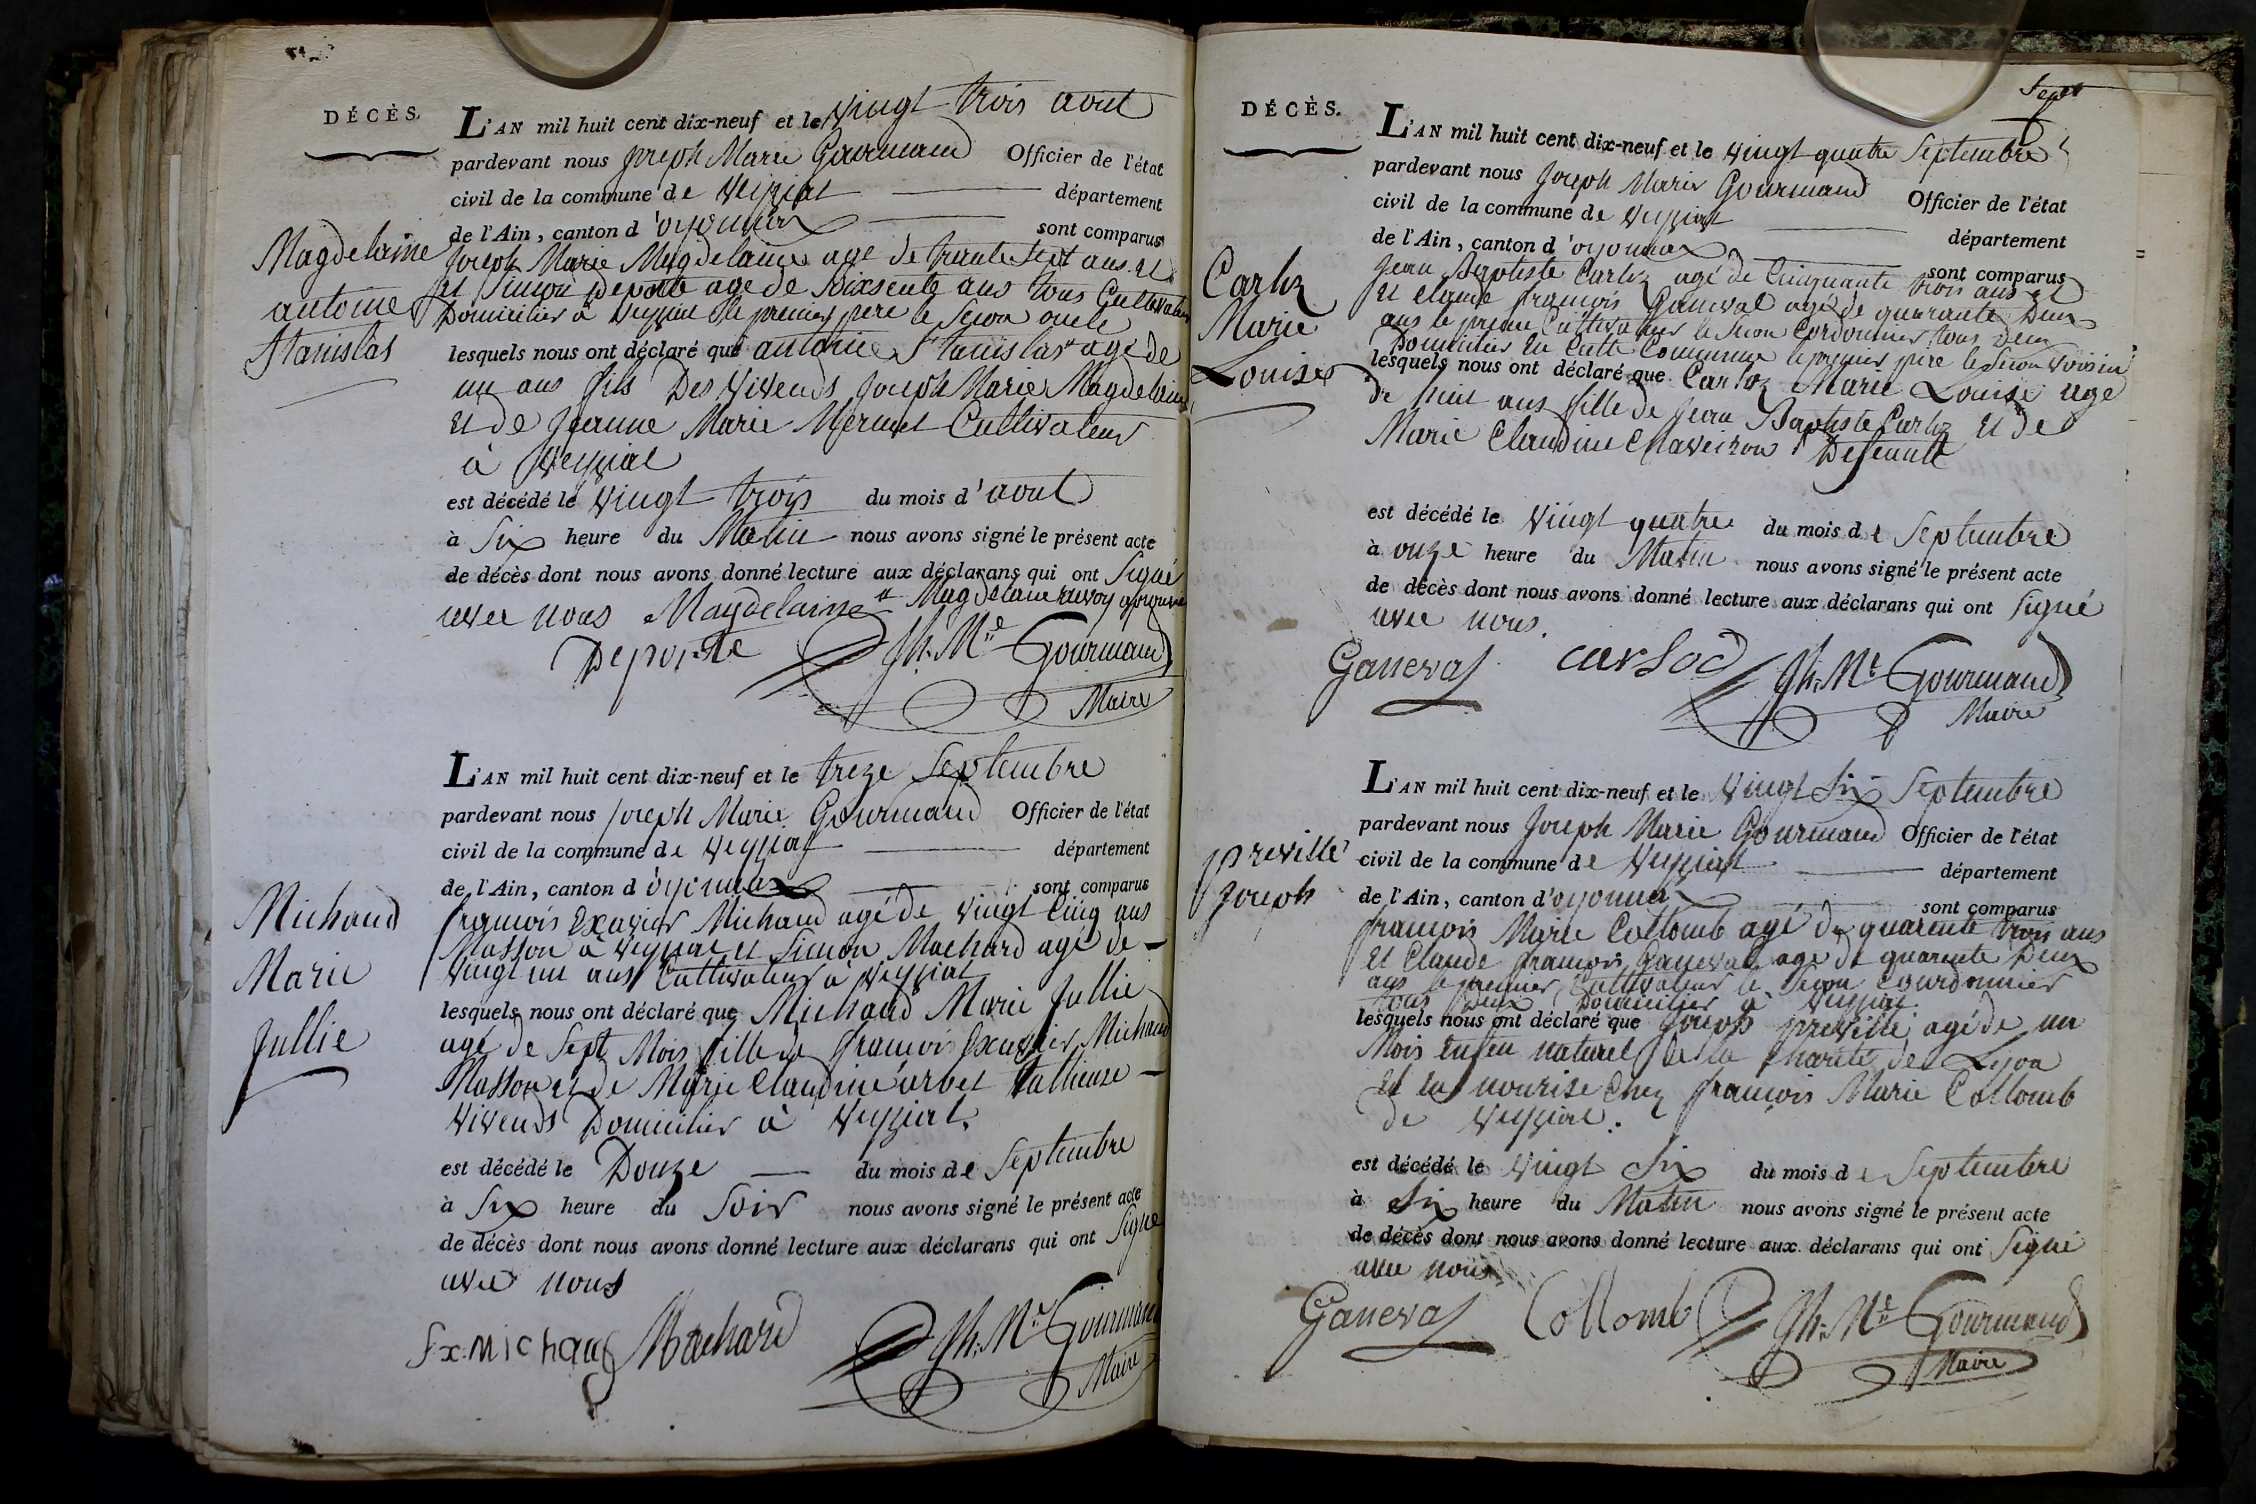 DÉCÈS.
L'AN mil huit cent dix-neuf et le vingt trois aout
pardevant nous Joseph Marie Gourmand Officier de l'état
civil de la commune de Veyziat département
de l'Ain, canton d'oyonnax sont comparus
Magdelaine
antoine
Stanislas
Joseph Marie Magdelaine age de trante sept ans et
et Simon Deporte age de soixsente ans tous Cultivateurs
Domicilier à Veyziat le premier pere le Segon oncle
lesquels nous ont déclaré que antoine Stanislas age de
un ans fils Des Vivends Joseph Marie Magdelaine
Et de Jeanne Marie Mermet Cultivateur
à Veyziat
est décédé le vingt trois du mois d'aout
à Six heure du Matin nous avons signé le présent acte
de décès dont nous avons donné lecture aux déclarans qui ont Signé
avec nous Magdelaine
Deporte Jh. Mie Gourmand
Maire
L'AN mil huit cent dix-neuf et le treze Septembre
pardevant nous Joseph Marie Gourmand Officier de l'état
civil de la commune de Veyziat département
de l'Ain, canton d'oyonnax sont comparus
Michaud
Marie
Jullie
françois Exavier Michaud agé de vingt Cinq ans
Masson à Veyziat et Simon Machard agé de
Vingt un ans Cultivateur à Veyziat
lesquels nous ont déclaré que Michaud Marie Jullie
agé de Sept Mois fille de françois Exavier Michaud
Masson et de Marie Claudine arbet tallieuse
Vivends Domicilier à Veyziat.
est décédé le Douze du mois de Septembre
à Six heure du Soir nous avons signé le présent acte
de décès dont nous avons donné lecture aux déclarans qui ont Signé
avec nous
fx. Michaud Machard Jh. Mie Gourmand
Maire
DÉCÈS.
L'AN mil huit cent dix-neuf et le vingt quatre Septembre
pardevant nous Joseph Marie Gourmand Officier de l'état
civil de la commune de Veyziat département
de l'Ain, canton d'oyonnax sont comparus
Carloz
Marie
Louise
Jean Baptiste Carloz agé de Cinquante trois ans et
Et Claude françois Ganeval agé de quarante Deux
ans le premier Cultivateur le Segon Cordonnier tous Deux
Domicilier En Cette Commune le premier pere le Segon Voisin
lesquels nous ont déclaré que Carloz Marie Louise age
De huit ans fille de Jean Baptiste Carloz Et de
Marie Claudine Chaveiron Defeunte
est décédé le vingt quatre du mois de Septembre
à onze heure du Matin nous avons signé le présent acte
de décès dont nous avons donné lecture aux déclarans qui ont signé
avec nous.
Ganeval carlod Jh. Mie Gourmand
Maire
L'AN mil huit cent dix-neuf et le Vingt Six Septembre
pardevant nous Joseph Marie Gourmand Officier de l'état
civil de la commune de Veyziat département
de l'Ain, canton d'oyonnax sont comparus
preville
Joseph
françois Marie Collomb agé de quarente trois ans
Et Claude françois Ganeval age de quarente Deux
ans le premier Cultivateur le Segon Courdonnier
tous Deux Domicilier à Veyziat
lesquels nous ont déclaré que Joseph preville agé de un
Mois enfen naturel de la Charité de Lyon
et en nourise Chez françois Marie Collomb
de Veyziat.
est décédé le vingt Six du mois de Septembre
à Six heure du Matin nous avons signé le présent acte
de décès dont nous avons donné lecture aux déclarans qui ont signé
avec nous
Ganeval Collomb Jh. Mie Gourmand
Maire